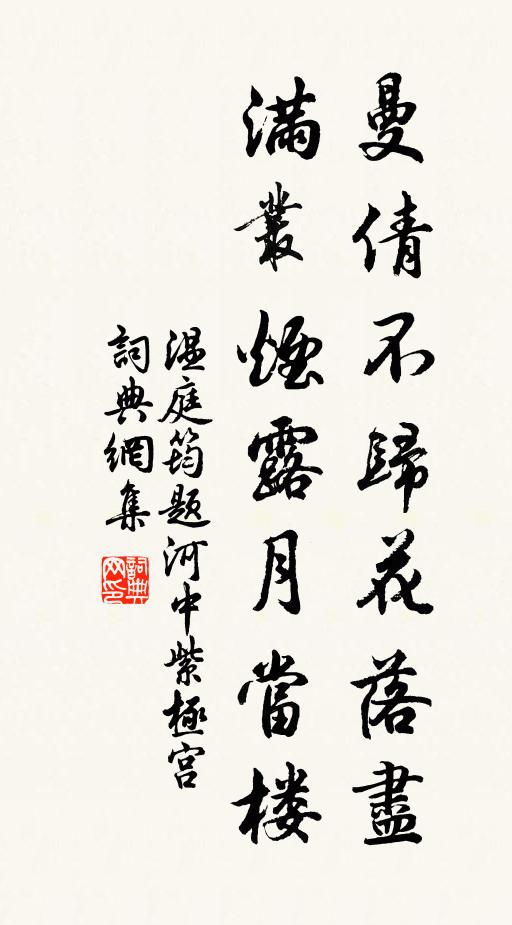 曼倩不歸花落盡
滿叢煙露月當楼
温庭筠题河中紫極宫
詞典網集
詞典网印